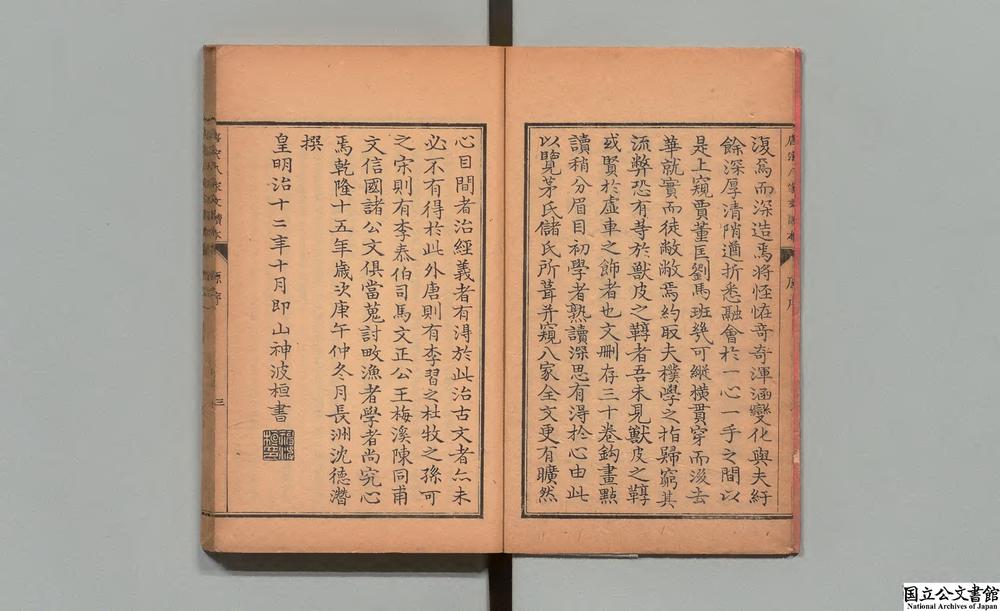 復焉而深造焉將怪怪奇奇渾涵變化與夫紆
餘深厚清陗遒折悉融會於一心一手之間以
是上窺賈董匡劉馬班幾可縱橫貫穿而後去
華就實而徒敝敝焉約取夫樸學之指歸窮其
流弊恐有等於獸皮之鞟者吾未見獸皮之鞟
或賢於虛車之飾者也文刪存三十卷鉤畫點
讀稍分眉目初學者熟讀深思有淂於心由此
以覽茅氏儲氏所葺并窺八家全文更有曠然
心目間者治經義者有淂於此治古文者亦未
必不有得於此外唐則有李習之杜牧之孫可
之宋則有李泰伯司馬文正公王梅溪陳同甫
文信國諸公文俱當蒐討畋漁者學者尚究心
焉乾隆十五年歲次庚午仲冬月長洲沈德潛
撰
皇明治十二年十月即山神波桓書
唐宋八家文讀本
原序
三
国立公文書館
National Archives of Japan